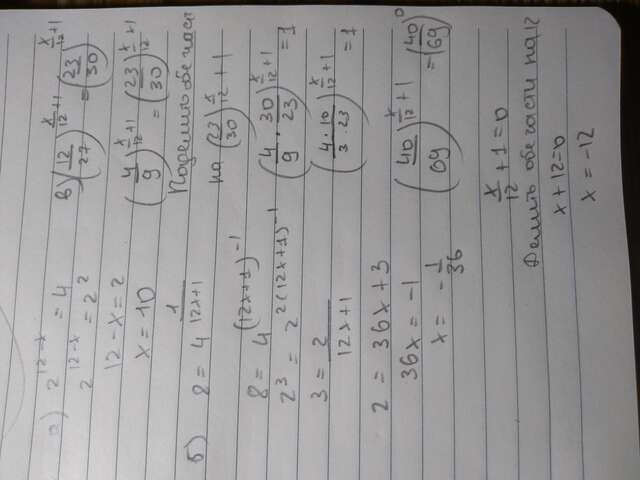 а) 2^{12-x} = 4
2^{12-x} = 2^2
12-x=2
x=10
б) 8 = 4^{\frac{1}{12x+1}}
8 = 4^{(12x+1)^{-1}}
2^3 = 2^{2(12x+1)^{-1}}
3 = \frac{2}{12x+1}
2 = 36x+3
36x = -1
x = -\frac{1}{36}
в) (\frac{12}{27})^{\frac{x}{12}+1} = (\frac{23}{30})^{\frac{x}{12}+1}
(\frac{4}{9})^{\frac{x}{12}+1} = (\frac{23}{30})^{\frac{x}{12}+1}
Поделить обе част
на (\frac{23}{30})^{\frac{x}{12}+1}
(\frac{4}{9} \cdot \frac{30}{23})^{\frac{x}{12}+1} = 1
(\frac{4 \cdot 10}{3 \cdot 23})^{\frac{x}{12}+1} = 1
(\frac{40}{69})^{\frac{x}{12}+1} = (\frac{40}{69})^0
\frac{x}{12}+1=0
Делить обе части на 12
x+12=0
x=-12